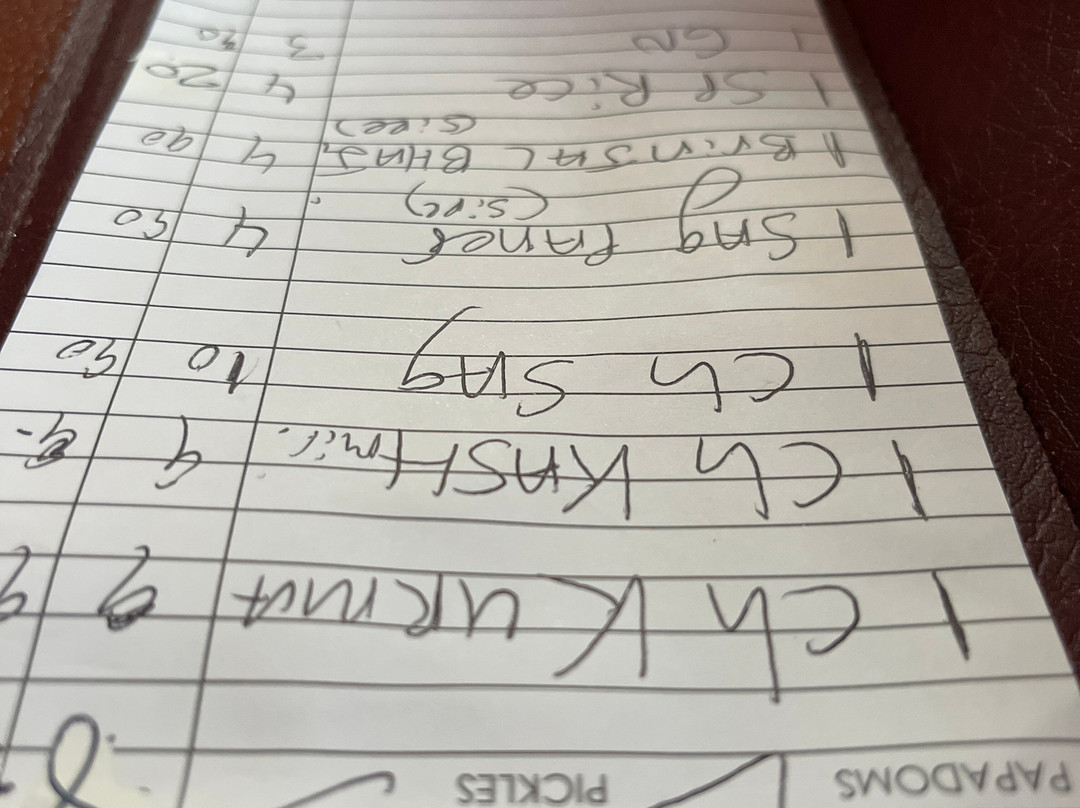 PAPADOMS PICKLES
1 Ch KURMA 9 9
1 Ch KASHmir. 9 9-
1 Ch SAg 10 50
1 SAg PANer 4 50
(Side)
1 BrinJAL BHAJ, 4 90
(Side)
1 SP Rice 4 20
1 GN 3 30